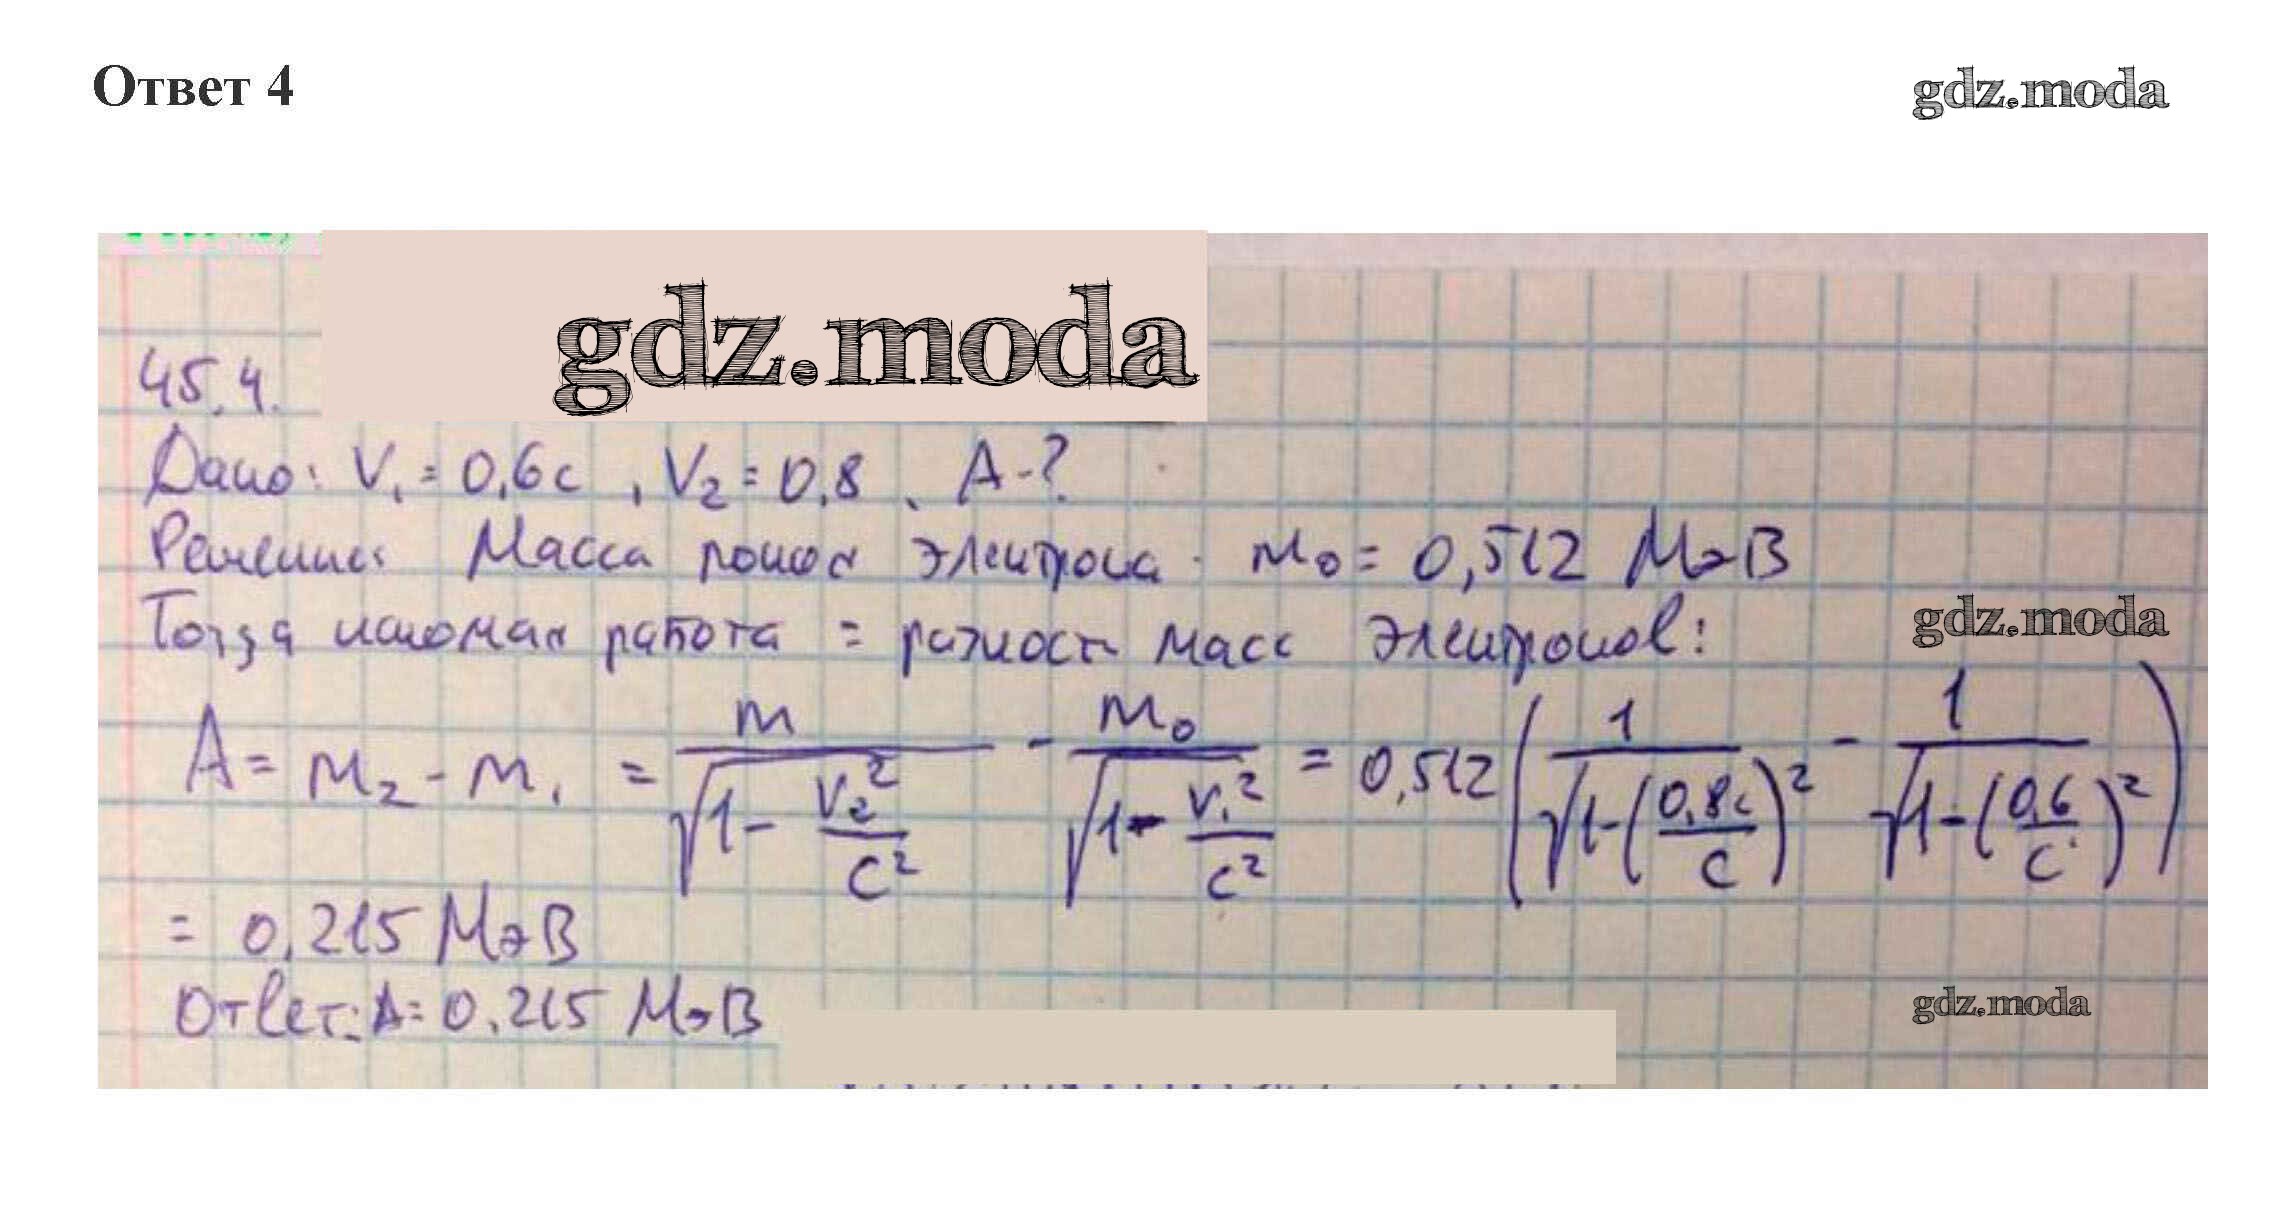 Ответ 4
gdz.moda
gdz.moda
45.4.
Дано: V₁ = 0,6c , V₂ = 0,8 , A-?
Решение: Масса покоя электрона m₀ = 0,512 МэВ
Тогда искомая работа = разность масс электронов:
gdz.moda
A = m₂ - m₁ = m/√(1 - V₂²/c²) - m₀/√(1 - V₁²/c²) = 0,512 (1/√(1-(0,8c/c)²) - 1/√(1-(0,6/c)²))
= 0,215 МэВ
gdz.moda
Ответ: A = 0,215 МэВ